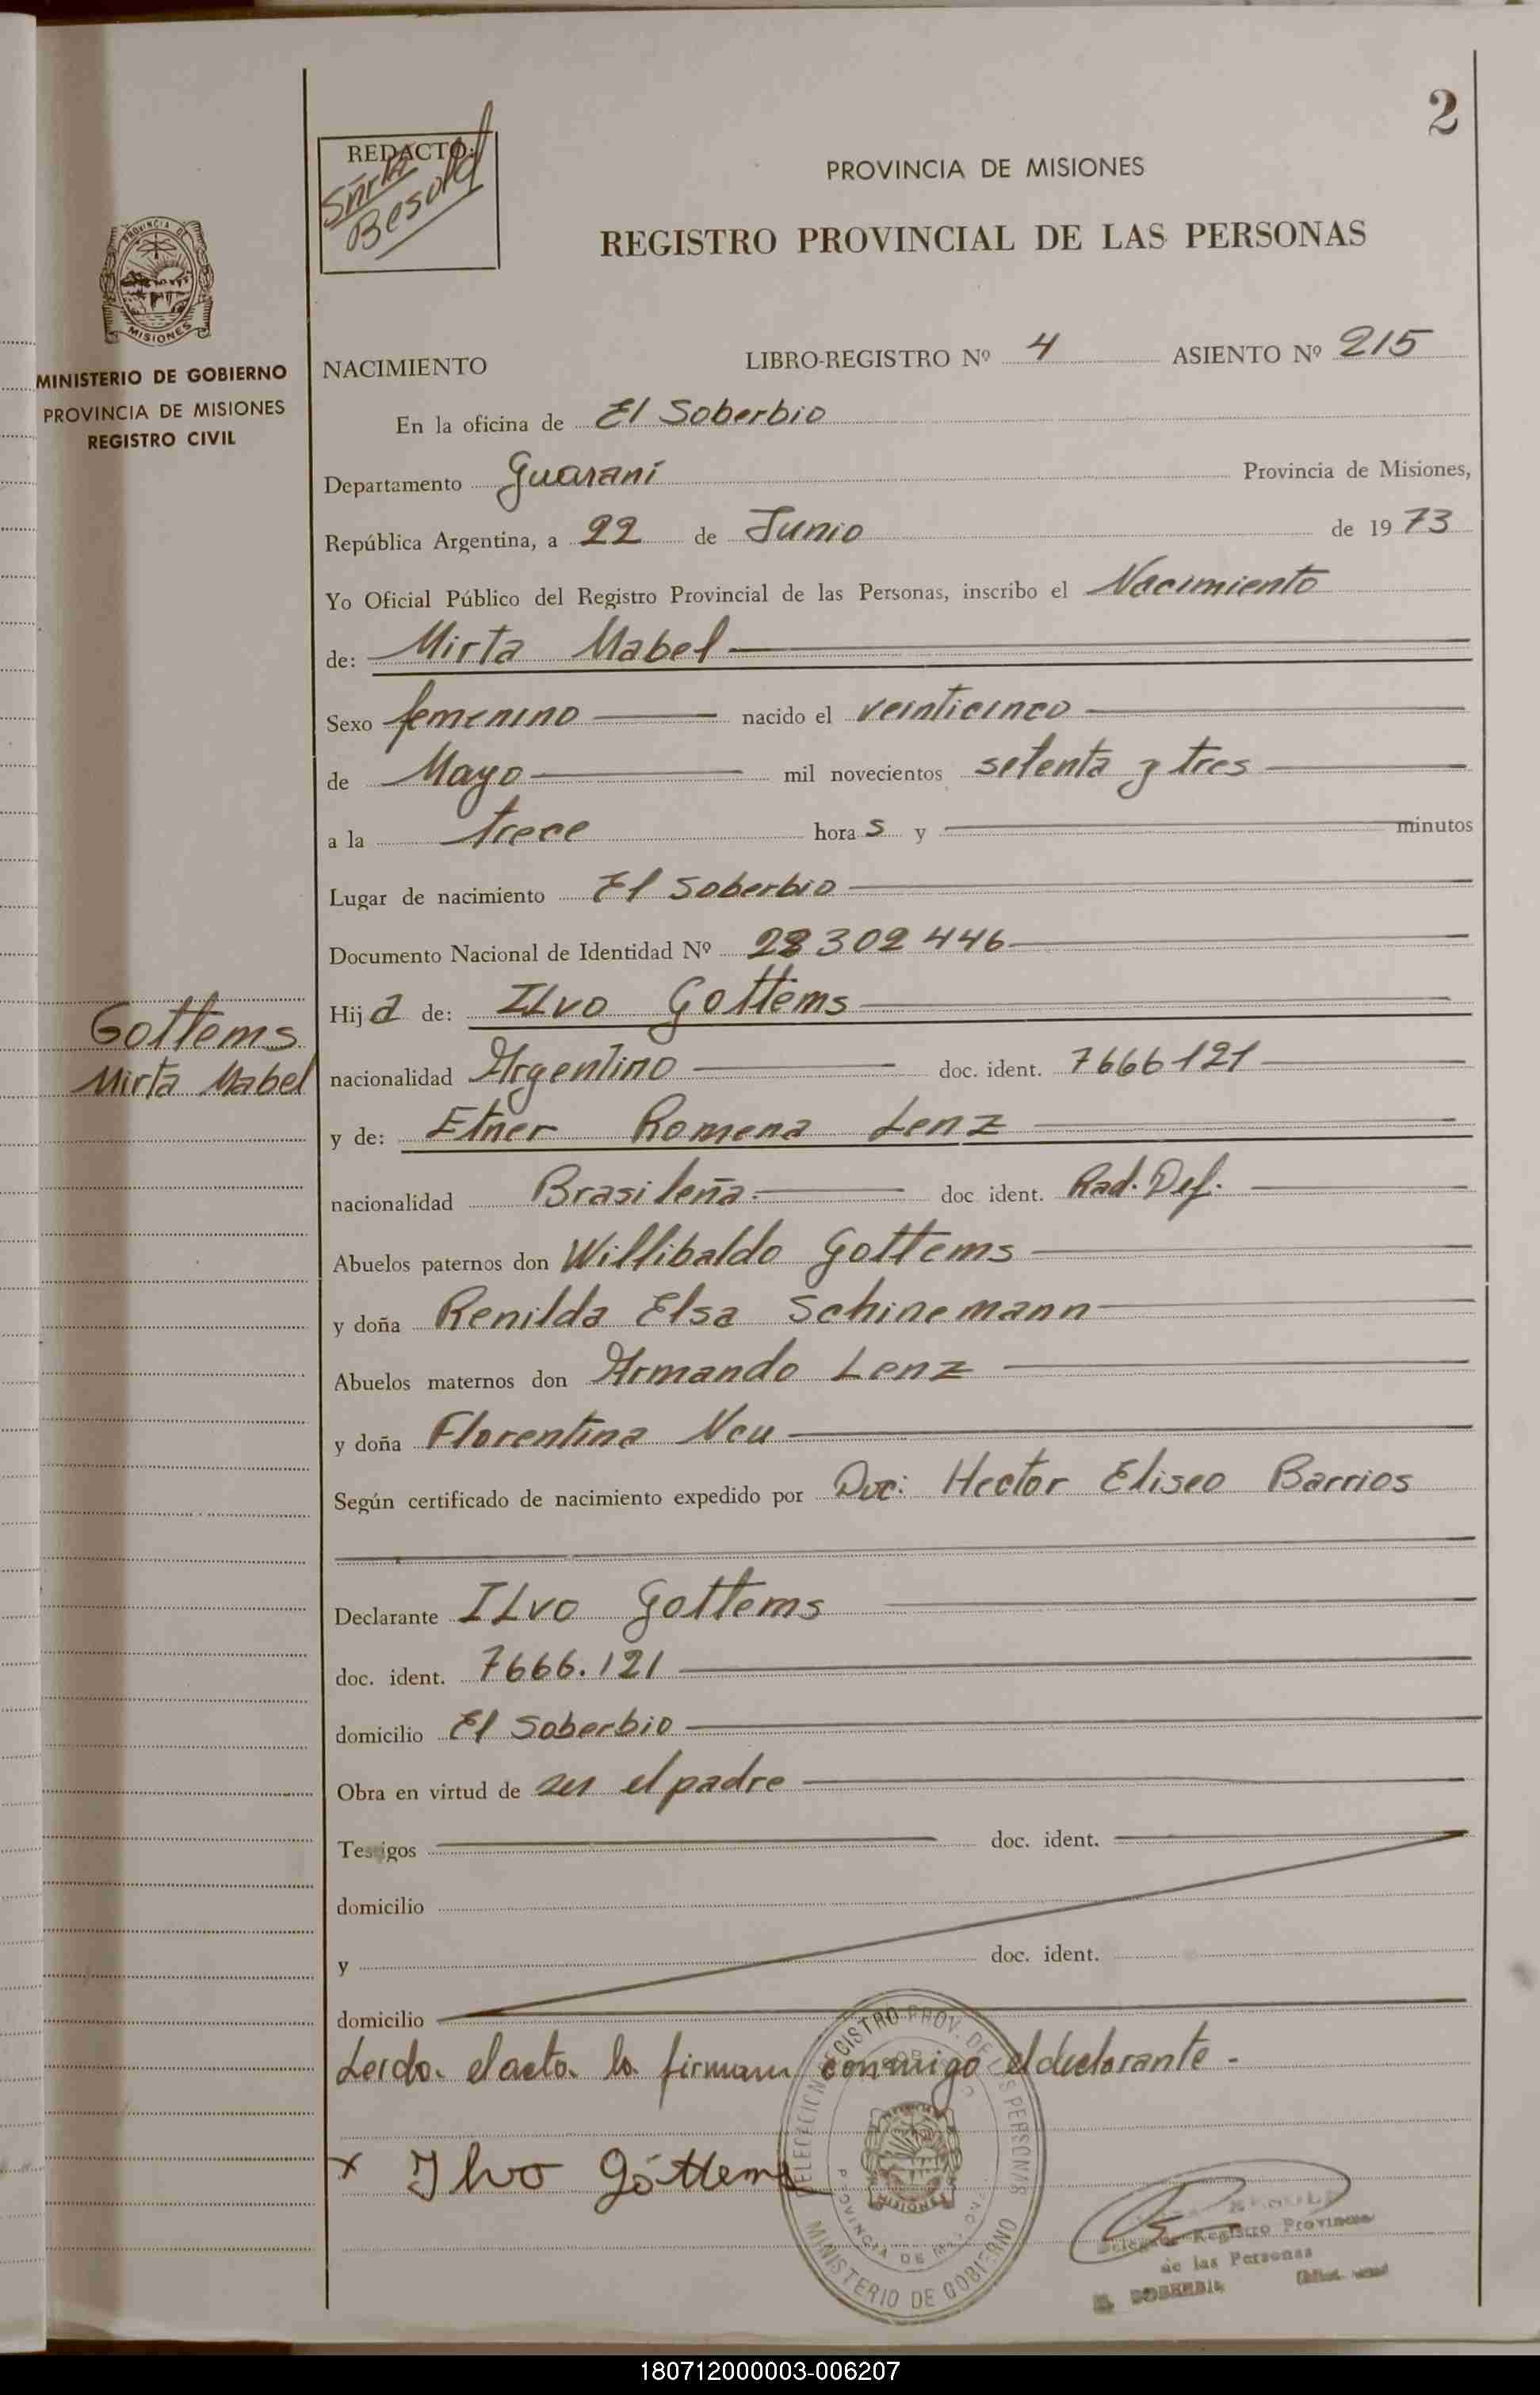 2
REDACTO:
Besold
PROVINCIA DE MISIONES
REGISTRO PROVINCIAL DE LAS PERSONAS
PROVINCIA DE
MISIONES
MINISTERIO DE GOBIERNO
PROVINCIA DE MISIONES
REGISTRO CIVIL
NACIMIENTO LIBRO-REGISTRO Nº 4 ASIENTO Nº 215
En la oficina de El Soberbio
Departamento Guaraní Provincia de Misiones,
República Argentina, a 22 de Junio de 1973
Yo Oficial Público del Registro Provincial de las Personas, inscribo el Nacimiento
de: Mirta Mabel
Sexo femenino nacido el veinticinco
de Mayo mil novecientos setenta y tres
a la trece horas y minutos
Lugar de nacimiento El Soberbio
Documento Nacional de Identidad Nº 23302446
Gottems
Mirta Mabel
Hija de: ILvo Gottems
nacionalidad Argentino doc. ident. 7666121
y de: Etner Romena Lenz
nacionalidad Brasileña. doc ident. Rad. Def.
Abuelos paternos don Willibaldo Gottems
y doña Renilda Elsa Schinemann
Abuelos maternos don Armando Lenz
y doña Florentina Neu
Según certificado de nacimiento expedido por Doc: Hector Eliseo Barrios
Declarante ILvo Gottems
doc. ident. 7666.121
domicilio El Soberbio
Obra en virtud de ser el padre
Testigos doc. ident.
domicilio
y doc. ident.
domicilio
Leido el acta la firman conmigo el declarante.
x Ilvo Göttems
DELEGACION REGISTRO PROV. DE LAS PERSONAS
PROVINCIA DE MISIONES
MINISTERIO DE GOBIERNO
Delegado Registro Provincial
de las Personas
EL SOBERBIO
180712000003-006207